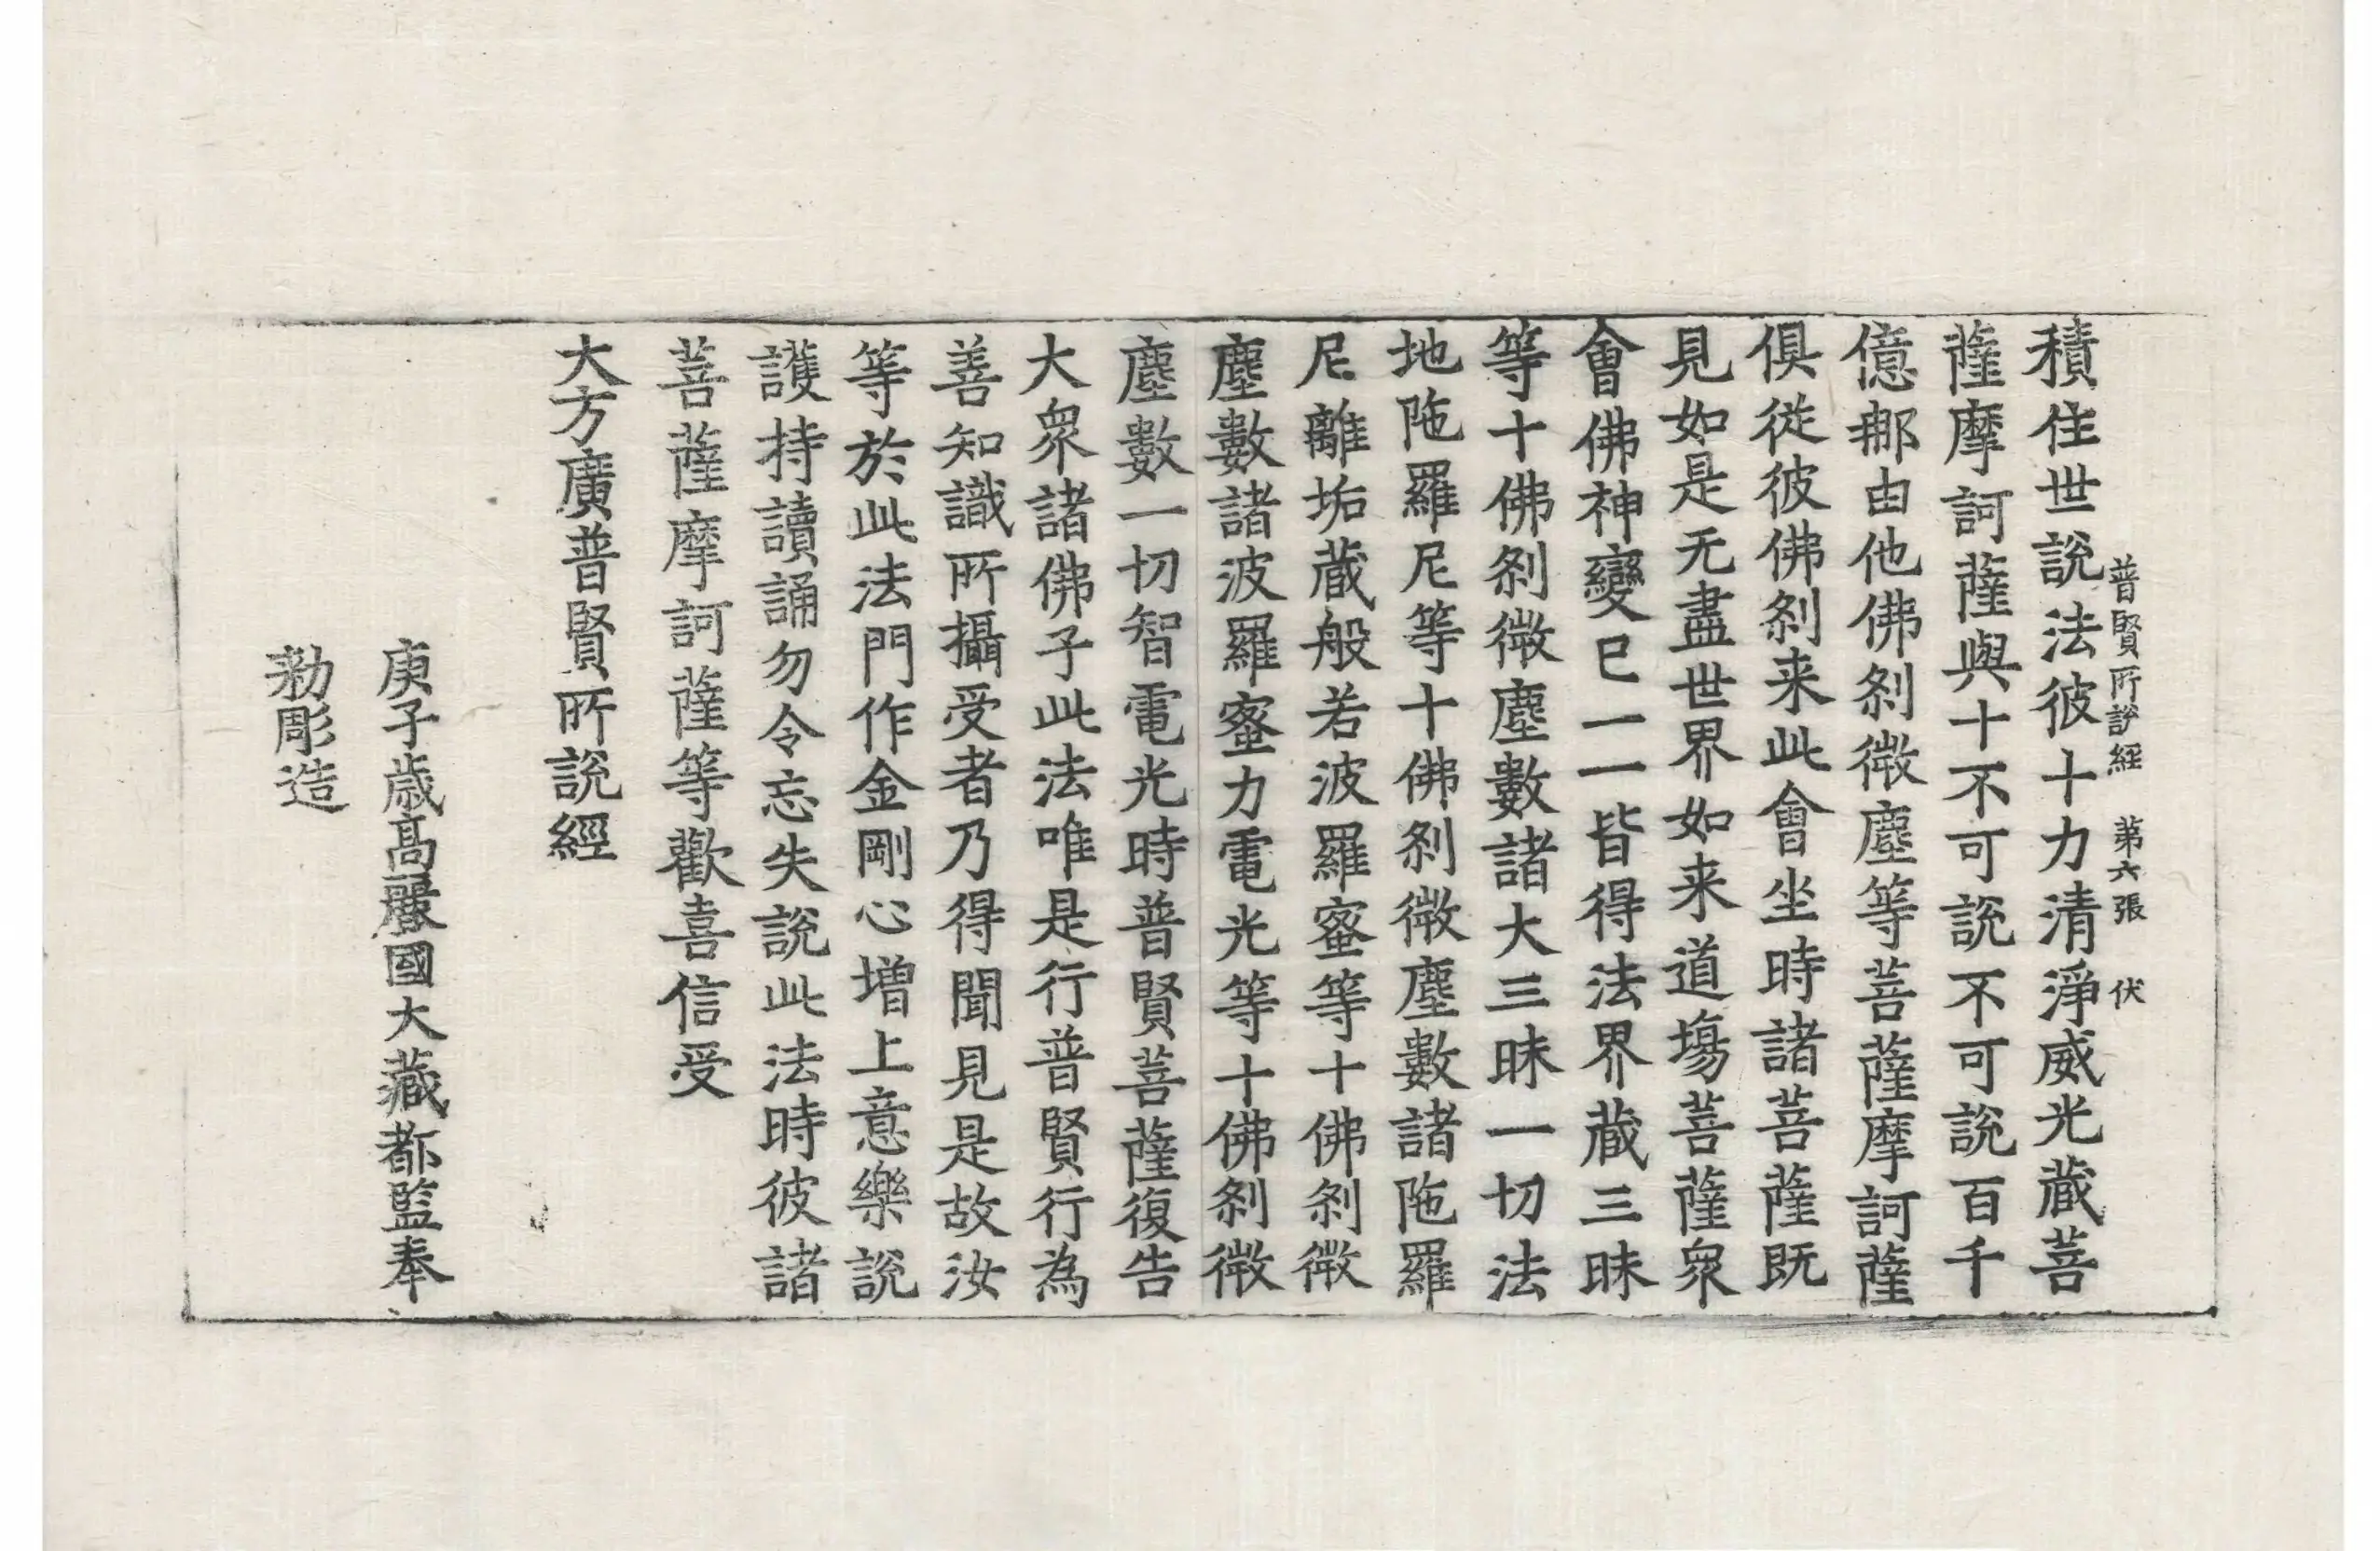 普賢所說經　第六張　伏
積住世說法彼十力清淨威光蔵菩
薩摩訶薩與十不可說不可說百千
億那由他佛刹微塵等菩薩摩訶薩
俱從彼佛刹来此會坐時諸菩薩既
見如是无盡世界如来道場菩薩衆
會佛神變已一一皆得法界蔵三昧
等十佛刹微塵數諸大三昧一切法
地陁羅尼等十佛刹微塵數諸陁羅
尼離垢蔵般若波羅蜜等十佛刹微
塵數諸波羅蜜力電光等十佛刹微
塵數一切智電光時普賢菩薩復告
大衆諸佛子此法唯是行普賢行為
善知識所攝受者乃得聞見是故汝
等於此法門作金剛心增上意樂說
護持讀誦勿令忘失說此法時彼諸
菩薩摩訶薩等歡喜信受
大方廣普賢所說經
庚子歳高麗國大藏都監奉
勑彫造